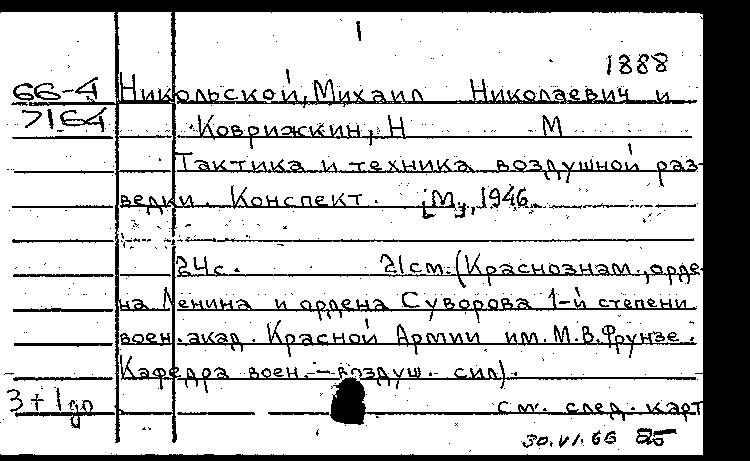 1
1888
66-4 Никольской, Михаил Николаевич и
7164 Коврижкин, Н М
Тактика и техника воздушной раз-
ведки. Конспект. [М], 1946.
24с. 21см. (Краснознам., орде-
на Ленина и ордена Суворова 1-й степени
воен. акад. Красной Армии им. М.В. Фрунзе.
Кафедра воен.-воздуш. сил).
3+1 др
см. след. карт
30.VI.66